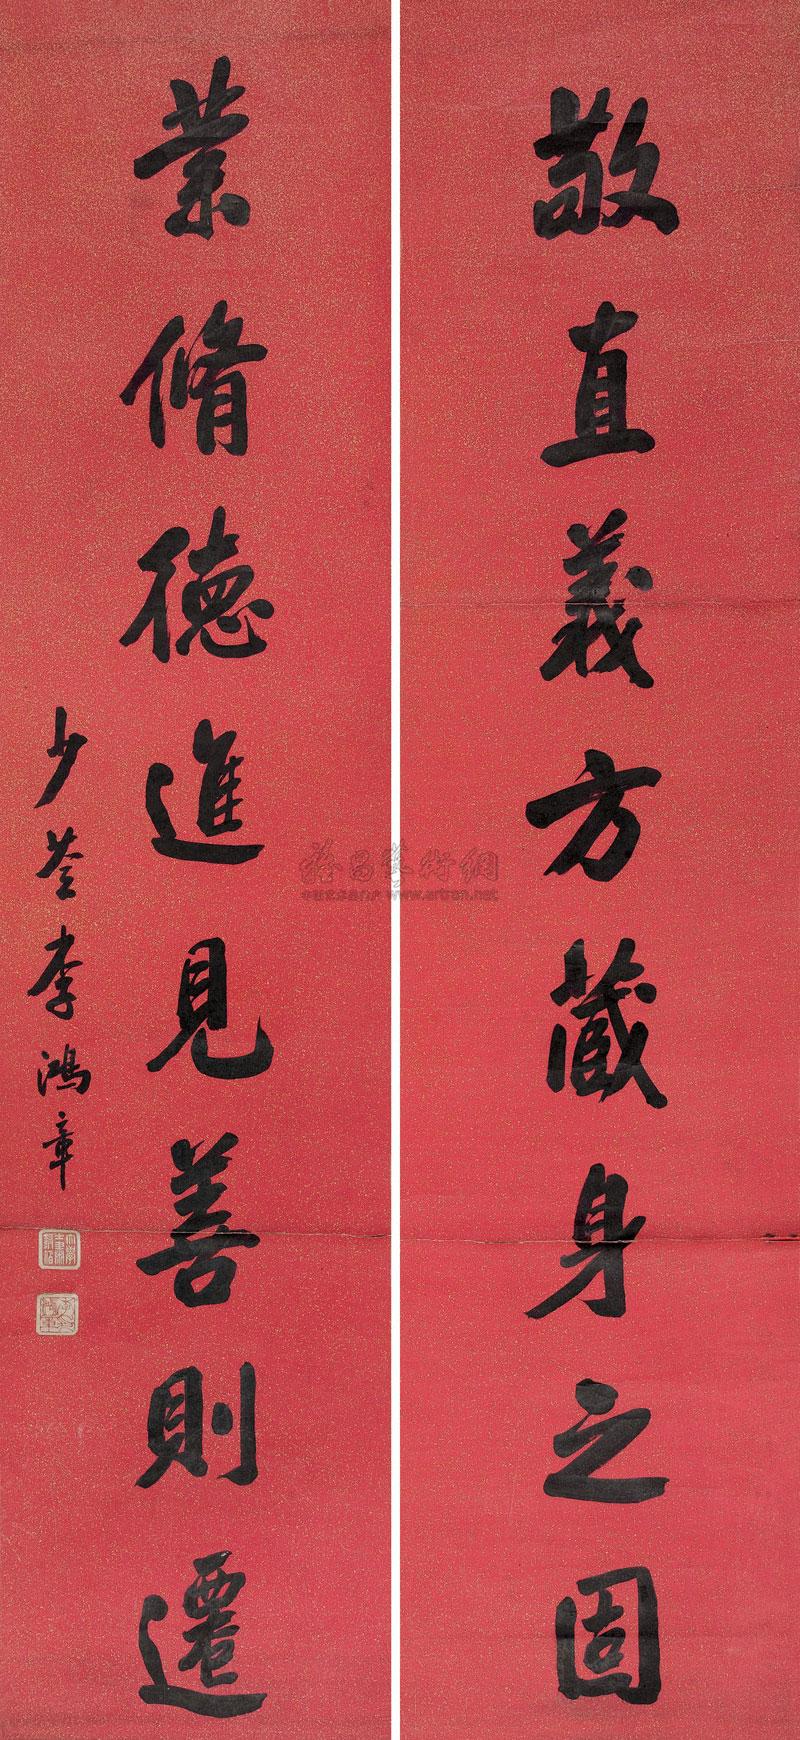 敬直義方藏身之固
業脩德進見善則遷
少荃李鴻章
www.artron.net